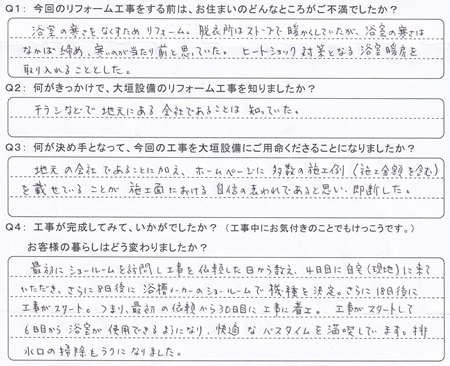 Q1： 今回のリフォーム工事をする前は、お住まいのどんなところがご不満でしたか？
浴室の寒さをなくすためリフォーム。脱衣所はストーブで暖かくしていたが、浴室の寒さは
なかば諦め、寒いのが当たり前と思っていた。ヒートショック対策となる浴室暖房を
取り入れることとした。
Q2： 何がきっかけで、大垣設備のリフォーム工事を知りましたか？
チラシなどで地元にある会社であることは知っていた。
Q3： 何が決め手となって、今回の工事を大垣設備にご用命くださることになりましたか？
地元の会社であることに加え、ホームページに多数の施工例（施工金額を含む）
を載せていることが施工面における自信の表われであると思い、即断した。
Q4： 工事が完成してみて、いかがでしたか？（工事中にお気付きのことでもけっこうです。）
お客様の暮らしはどう変わりましたか？
最初にショールームを訪問し工事を依頼した日から数え、4日目に自宅（現地）に来て
いただき、さらに8日後に浴槽メーカーのショールームで機種を決定。さらに18日後に
工事がスタート。つまり、最初の依頼から30日目に工事に着工。 工事がスタートして
6日目から浴室が使用できるようになり、快適なバスタイムを満喫しています。排
水口の掃除もラクになりました。